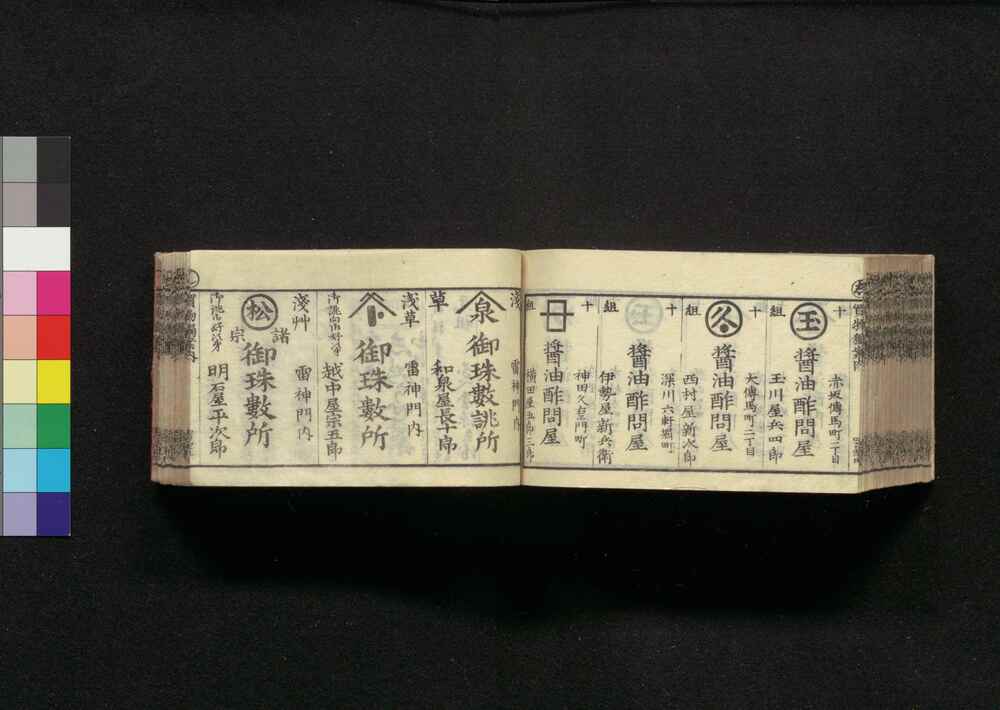 十組
赤坂傳馬町一丁目
玉
醬油酢問屋
玉川屋兵四郎
十組
大傳馬町二丁目
久
醬油酢問屋
西村屋新次郎
十組
深川六軒堀町
玉
醬油酢問屋
伊勢屋新兵衛
十組
神田久右衛門町
醬油酢問屋
横田屋五郎三郎
淺草
雷神門内
泉
御珠數誂所
和泉屋長十郎
浅草
雷神門内
御珠數所
御誂向御好次第
越中屋宗五郎
淺艸
雷神門内
松
諸宗
御珠數所
御誂御好次第
明石屋平次郎